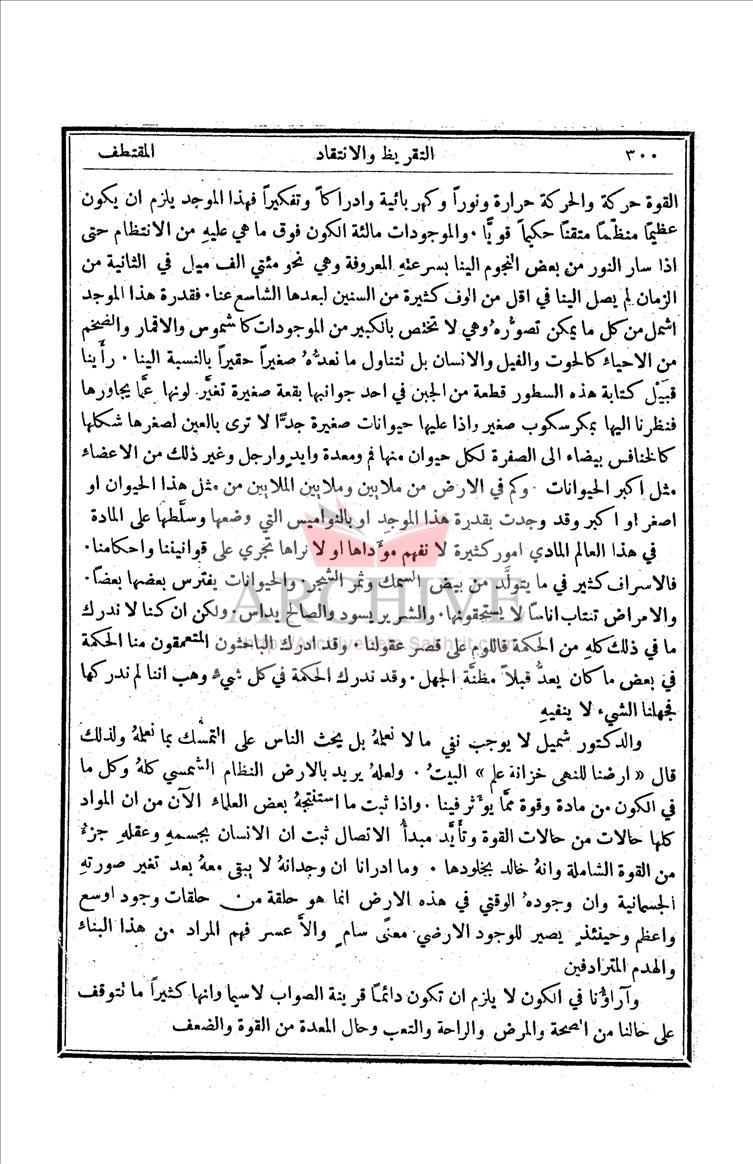 ٣٠٠ التقريظ والانتقاد المقتطف
القوة حركة والحركة حرارة ونوراً وكهربائية وادراكاً وتفكيراً فهذا الموجد يلزم ان يكون
عظيماً منظماً متقناً حكيماً قويًّا . والموجودات مالئة الكون فوق ما هي عليهِ من الانتظام حتى
اذا سار النور من بعض النجوم الينا بسرعتهِ المعروفة وهي نحو مئتي الف ميل في الثانية من
الزمان لم يصل الينا في اقل من الوف كثيرة من السنين لبعدها الشاسع عنا . فقدرة هذا الموجد
اشمل من كل ما يمكن تصوُّرهُ وهي لا تختص بالكبير من الموجودات كالشموس والاقمار والضخم
من الاحياء كالحوت والفيل والانسان بل تتناول ما نعدُّهُ صغيراً حقيراً بالنسبة الينا . رأينا
قبيل كتابة هذه السطور قطعة من الجبن في احد جوانبها بقعة صغيرة تغيَّر لونها عمَّا يجاورها
فنظرنا اليها بمكرسكوب صغير واذا عليها حيوانات صغيرة جدًّا لا ترى بالعين لصغرها شكلها
كالخنافس بيضاء الى الصفرة لكل حيوان منها فم ومعدة وايدٍ وارجل وغير ذلك من الاعضاء
مثل اكبر الحيوانات . وكم في الارض من ملايين وملايين الملايين من مثل هذا الحيوان او
اصغر او اكبر وقد وجدت بقدرة هذا الموجد او بالنواميس التي وضعها وسلَّطها على المادة
في هذا العالم المادي امور كثيرة لا نفهم مؤداها او لا نراها تجري على قوانيننا واحكامنا .
فالاسراف كثير في ما يتولَّد من بيض السمك وثمر الشجر . والحيوانات يفترس بعضها بعضاً .
والامراض تنتاب اناساً لا يستحقونها . والشرير يسود والصالح يداس . ولكن ان كنا لا ندرك
ما في ذلك كلهِ من الحكمة فاللوم على قصر عقولنا . وقد ادرك الباحثون المتعمقون منا الحكمة
في بعض ما كان يعدُّ قبلاً مظنَّة الجهل . وقد ندرك الحكمة في كل شيءٍ وهب اننا لم ندركها
فجهلنا الشيء لا ينفيهِ
والدكتور شميل لا يوجب نفي ما لا نعلمهُ بل يحث الناس على التمسُّك بما نعلمهُ ولذلك
قال « ارضنا للنهى خزانة علم » البيتُ . ولعلهُ يريد بالارض النظام الشمسي كلهُ وكل ما
في الكون من مادة وقوة ممَّا يؤثر فينا . واذا ثبت ما استنتجهُ بعض العلماء الآن من ان المواد
كلها حالات من حالات القوة وتأيَّد مبدأُ الاتصال ثبت ان الانسان بجسمهِ وعقلهِ جزءٌ
من القوة الشاملة وانهُ خالد بخلودها . وما ادرانا ان وجدانهُ لا يبقى معهُ بعد تغير صورتهِ
الجسمانية وان وجودهُ الوقتي في هذه الارض انما هو حلقة من حلقات وجود اوسع
واعظم وحينئذٍ يصير للوجود الارضي معنًى سامٍ والاَّ عسر فهم المراد من هذا البناء
والهدم المترادفين
وآراؤنا في الكون لا يلزم ان تكون دائماً قرينة الصواب لاسيما وانها كثيراً ما تتوقف
على حالنا من الصحة والمرض والراحة والتعب وحال المعدة من القوة والضعف
ARCHIVE
http://Archivebeta.Sakhrit.com